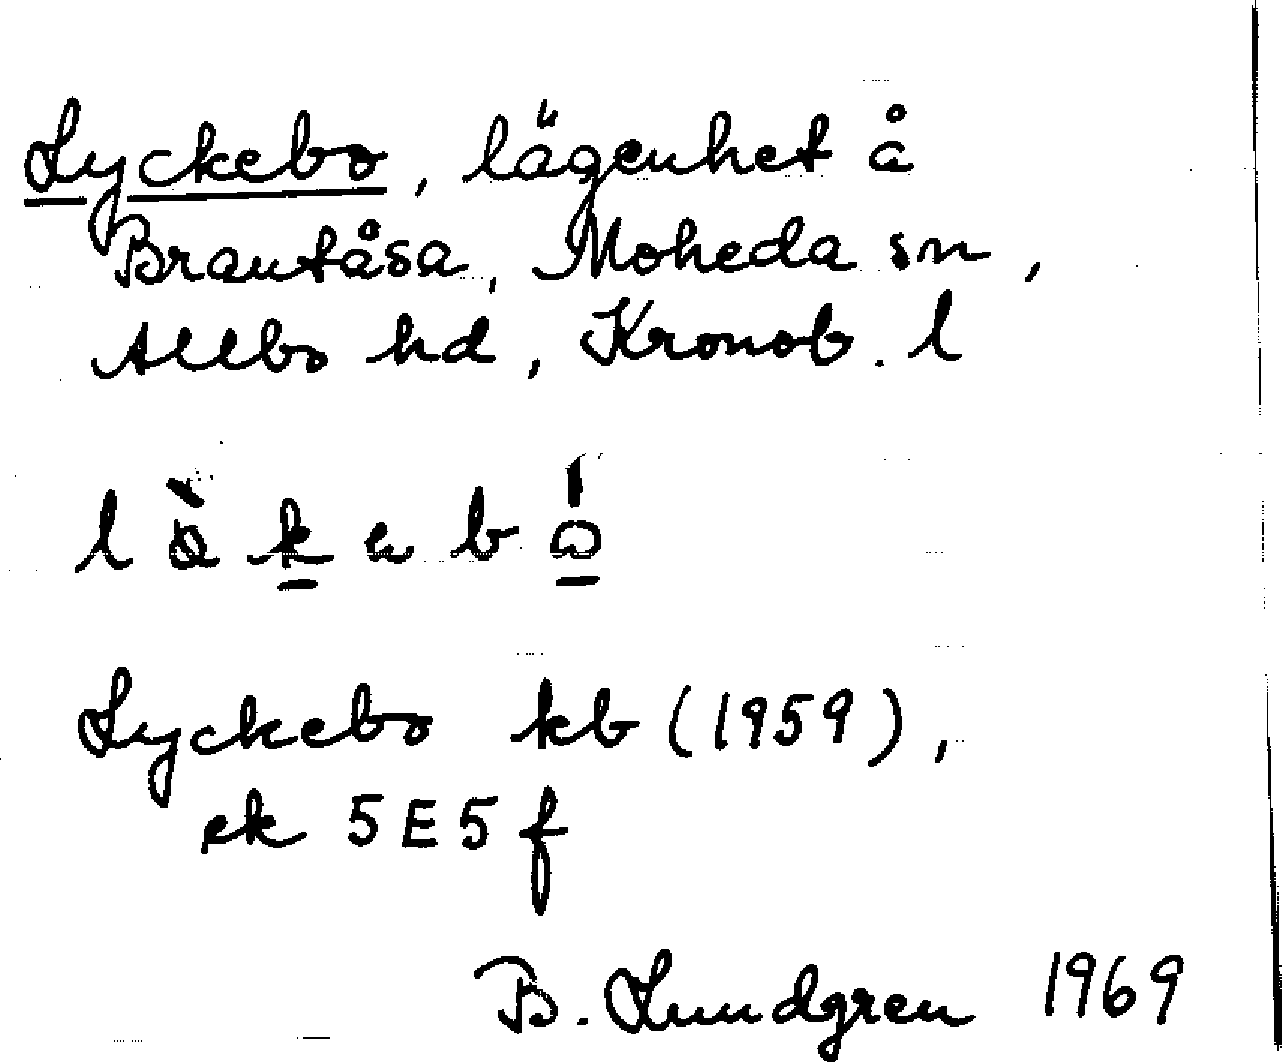 Lyckebo, lägenhet å
Brantåsa, Moheda sn,
Allbo hd, Kronob. l
Lyckebo kb (1959),
ek 5E5f
B. Lundgren 1969